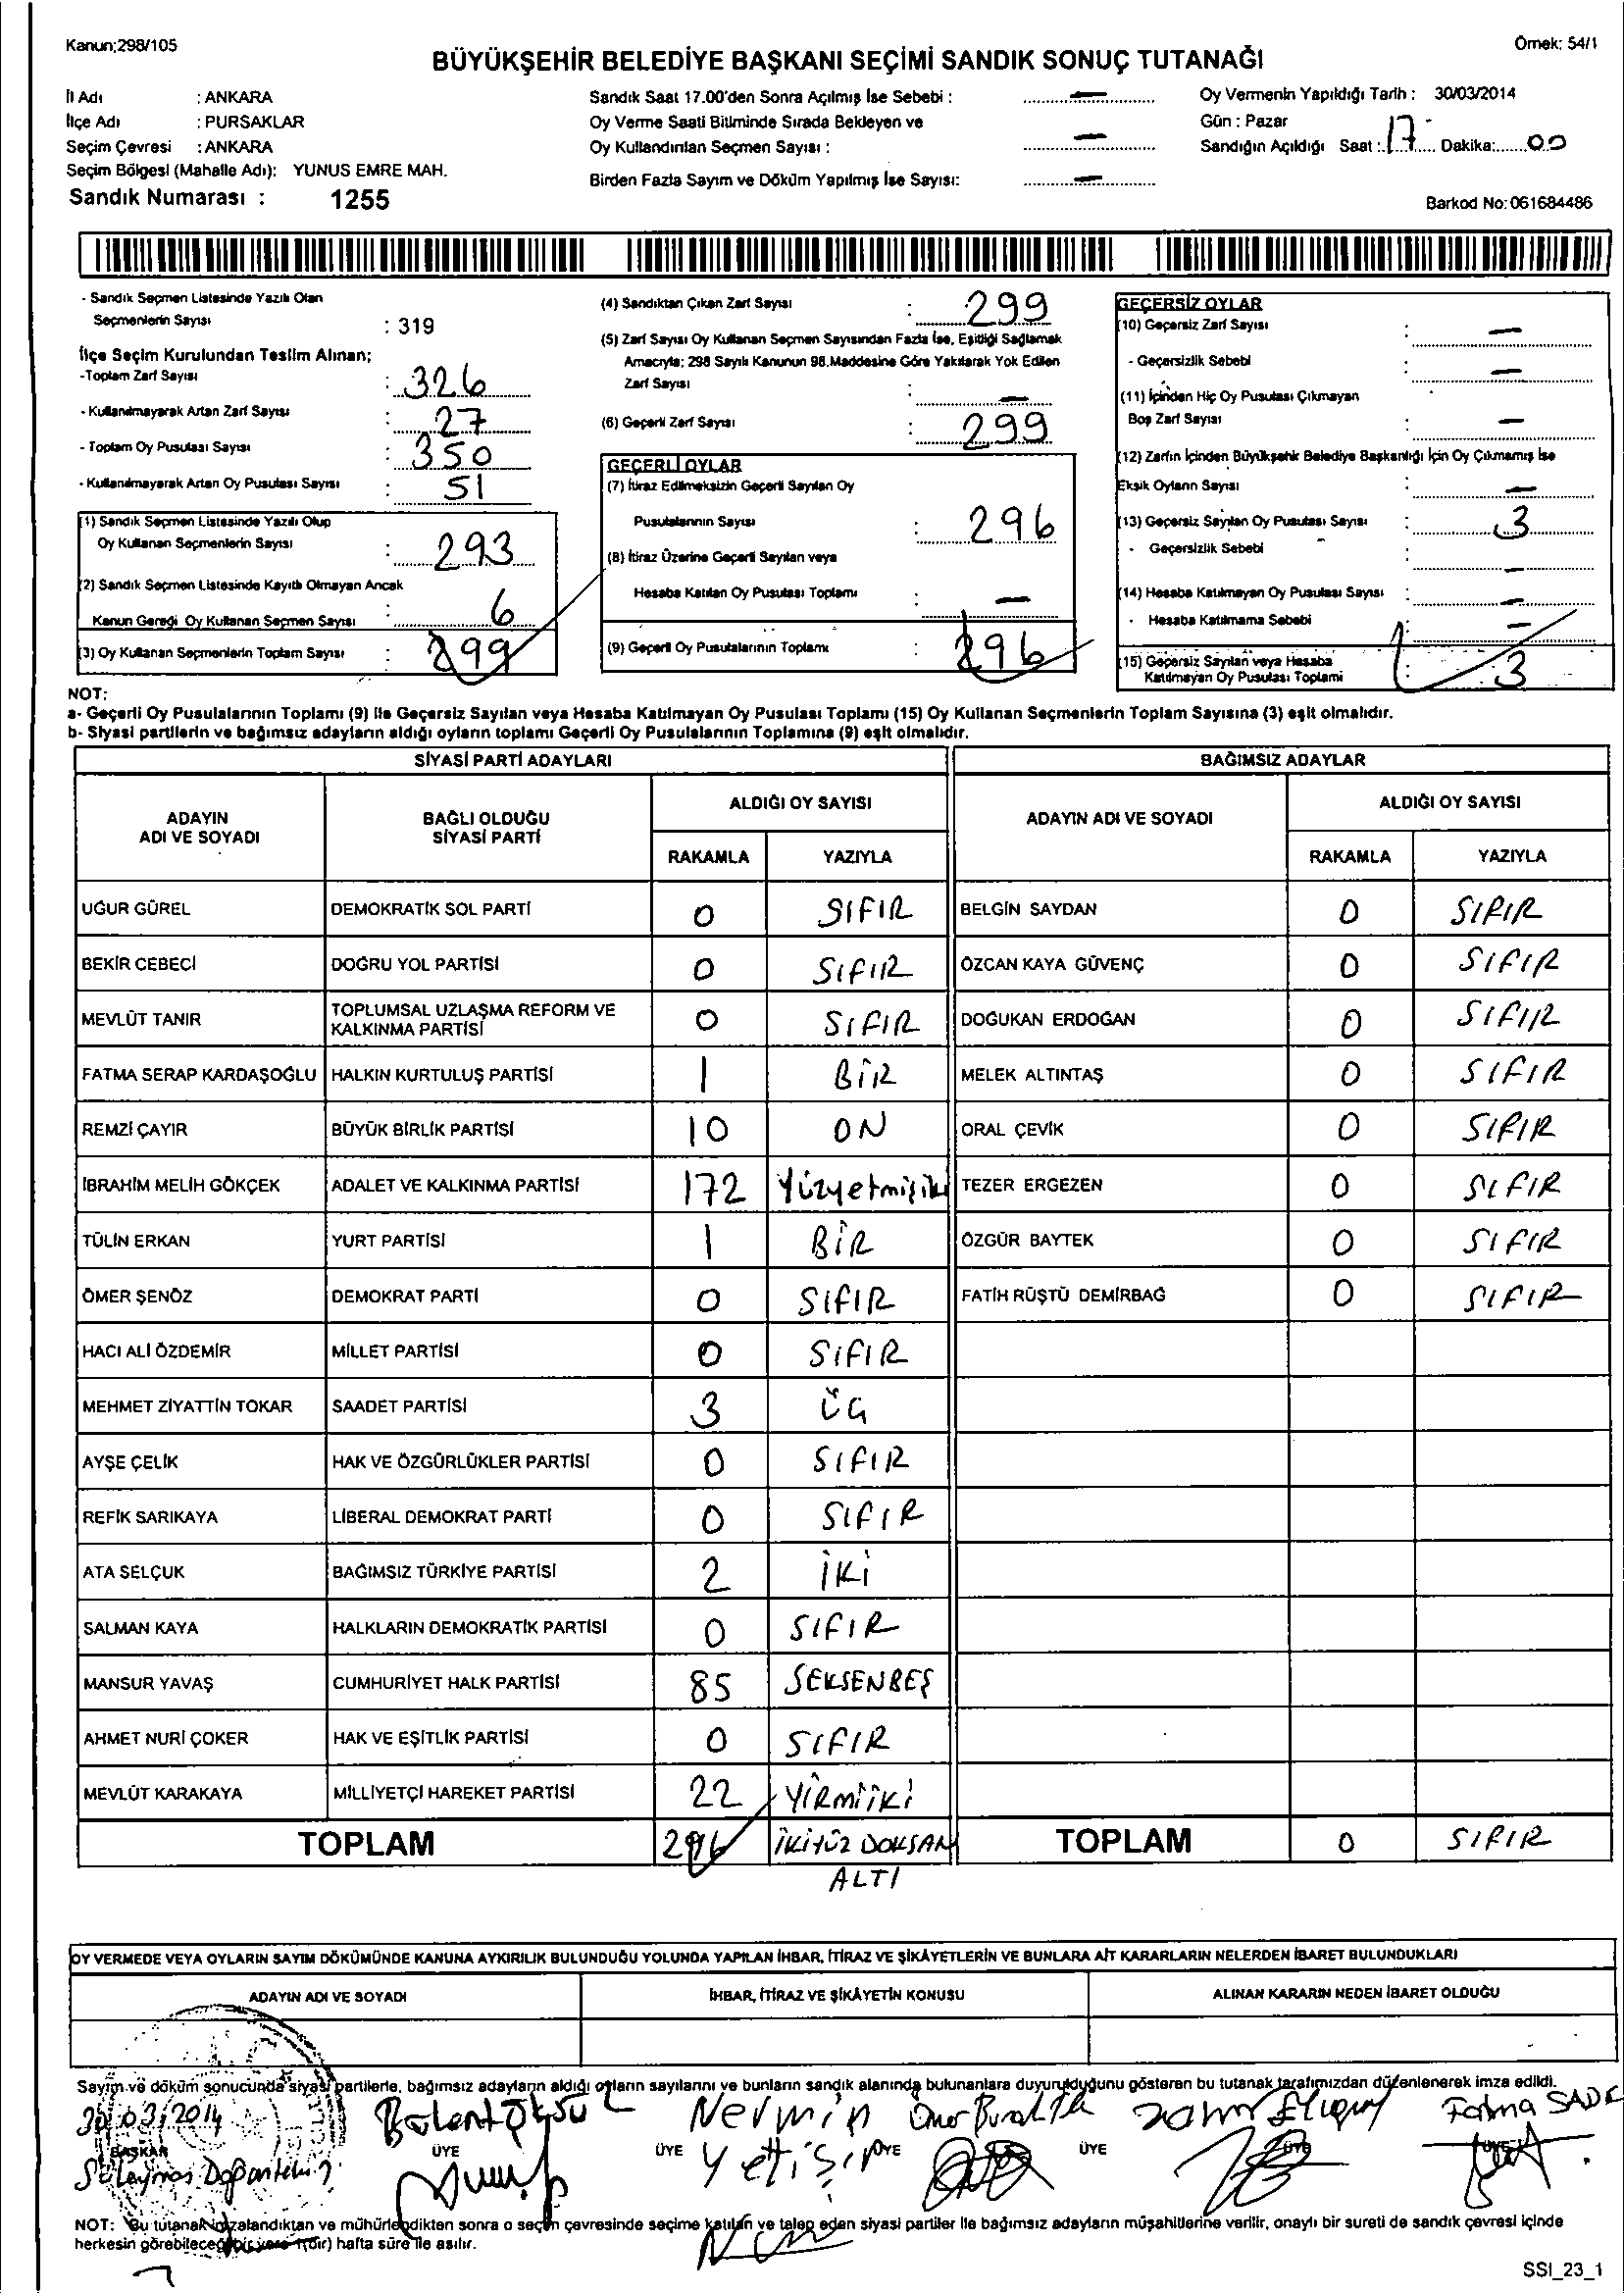 Kanun;298/105
Örnek: 54/1
BÜYÜKŞEHİR BELEDİYE BAŞKANI SEÇİMİ SANDIK SONUÇ TUTANAĞI
İl Adı : ANKARA
İlçe Adı : PURSAKLAR
Seçim Çevresi : ANKARA
Seçim Bölgesi (Mahalle Adı): YUNUS EMRE MAH.
Sandık Numarası : 1255
Sandık Saat 17.00'den Sonra Açılmış İse Sebebi : —
Oy Verme Saati Bitiminde Sırada Bekleyen ve
Oy Kullandırılan Seçmen Sayısı : —
Birden Fazla Sayım ve Döküm Yapılmış İse Sayısı: —
Oy Vermenin Yapıldığı Tarih : 30/03/2014
Gün : Pazar
Sandığın Açıldığı Saat : 17 Dakika: 00
Barkod No: 061684486
- Sandık Seçmen Listesinde Yazılı Olan
Seçmenlerin Sayısı : 319
İlçe Seçim Kurulundan Teslim Alınan;
-Toplam Zarf Sayısı : 326
- Kullanılmayarak Artan Zarf Sayısı : 27
- Toplam Oy Pusulası Sayısı : 350
- Kullanılmayarak Artan Oy Pusulası Sayısı : 51
(1) Sandık Seçmen Listesinde Yazılı Olup
Oy Kullanan Seçmenlerin Sayısı : 293
(2) Sandık Seçmen Listesinde Kayıtlı Olmayan Ancak
Kanun Gereği Oy Kullanan Seçmen Sayısı : 6
(3) Oy Kullanan Seçmenlerin Toplam Sayısı : 299
(4) Sandıktan Çıkan Zarf Sayısı : 299
(5) Zarf Sayısı Oy Kullanan Seçmen Sayısından Fazla İse, Eşitliği Sağlamak
Amacıyla; 298 Sayılı Kanunun 98.Maddesine Göre Yakılarak Yok Edilen
Zarf Sayısı : —
(6) Geçerli Zarf Sayısı : 299
GEÇERLİ OYLAR
(7) İtiraz Edilmeksizin Geçerli Sayılan Oy
Pusulalarının Sayısı : 296
(8) İtiraz Üzerine Geçerli Sayılan veya
Hesaba Katılan Oy Pusulası Toplamı : —
(9) Geçerli Oy Pusulalarının Toplamı : 296
GEÇERSİZ OYLAR
(10) Geçersiz Zarf Sayısı : —
- Geçersizlik Sebebi : —
(11) İçinden Hiç Oy Pusulası Çıkmayan
Boş Zarf Sayısı : —
(12) Zarfın İçinden Büyükşehir Belediye Başkanlığı İçin Oy Çıkmamış İse
Eksik Oyların Sayısı : —
(13) Geçersiz Sayılan Oy Pusulası Sayısı : 3
- Geçersizlik Sebebi : —
(14) Hesaba Katılmayan Oy Pusulası Sayısı : —
- Hesaba Katılmama Sebebi : —
(15) Geçersiz Sayılan veya Hesaba
Katılmayan Oy Pusulası Toplamı : 3
NOT:
a- Geçerli Oy Pusulalarının Toplamı (9) ile Geçersiz Sayılan veya Hesaba Katılmayan Oy Pusulası Toplamı (15) Oy Kullanan Seçmenlerin Toplam Sayısına (3) eşit olmalıdır.
b- Siyasi partilerin ve bağımsız adayların aldığı oyların toplamı Geçerli Oy Pusulalarının Toplamına (9) eşit olmalıdır.
SİYASİ PARTİ ADAYLARI BAĞIMSIZ ADAYLAR
ADAYIN ADI VE SOYADI BAĞLI OLDUĞU SİYASİ PARTİ ALDIĞI OY SAYISI ADAYIN ADI VE SOYADI ALDIĞI OY SAYISI
RAKAMLA YAZIYLA RAKAMLA YAZIYLA
UĞUR GÜREL DEMOKRATİK SOL PARTİ 0 SIFIR BELGİN SAYDAN 0 SIFIR
BEKİR CEBECİ DOĞRU YOL PARTİSİ 0 SIFIR ÖZCAN KAYA GÜVENÇ 0 SIFIR
MEVLÜT TANIR TOPLUMSAL UZLAŞMA REFORM VE KALKINMA PARTİSİ 0 SIFIR DOĞUKAN ERDOĞAN 0 SIFIR
FATMA SERAP KARDAŞOĞLU HALKIN KURTULUŞ PARTİSİ 1 BİR MELEK ALTINTAŞ 0 SIFIR
REMZİ ÇAYIR BÜYÜK BİRLİK PARTİSİ 10 ON ORAL ÇEVİK 0 SIFIR
İBRAHİM MELİH GÖKÇEK ADALET VE KALKINMA PARTİSİ 172 Yüzyetmişiki TEZER ERGEZEN 0 SIFIR
TÜLİN ERKAN YURT PARTİSİ 1 BİR ÖZGÜR BAYTEK 0 SIFIR
ÖMER ŞENÖZ DEMOKRAT PARTİ 0 SIFIR FATİH RÜŞTÜ DEMİRBAĞ 0 SIFIR
HACI ALİ ÖZDEMİR MİLLET PARTİSİ 0 SIFIR
MEHMET ZİYATTİN TOKAR SAADET PARTİSİ 3 ÜÇ
AYŞE ÇELİK HAK VE ÖZGÜRLÜKLER PARTİSİ 0 SIFIR
REFİK SARIKAYA LİBERAL DEMOKRAT PARTİ 0 SIFIR
ATA SELÇUK BAĞIMSIZ TÜRKİYE PARTİSİ 2 İKİ
SALMAN KAYA HALKLARIN DEMOKRATİK PARTİSİ 0 SIFIR
MANSUR YAVAŞ CUMHURİYET HALK PARTİSİ 85 SEKSENBEŞ
AHMET NURİ ÇOKER HAK VE EŞİTLİK PARTİSİ 0 SIFIR
MEVLÜT KARAKAYA MİLLİYETÇİ HAREKET PARTİSİ 22 YİRMİİKİ
TOPLAM 296 İKİYÜZ DOKSAN TOPLAM 0 SIFIR
ALTI
OY VERMEDE VEYA OYLARIN SAYIM DÖKÜMÜNDE KANUNA AYKIRILIK BULUNDUĞU YOLUNDA YAPILAN İHBAR, İTİRAZ VE ŞİKÂYETLERİN VE BUNLARA AİT KARARLARIN NELERDEN İBARET BULUNDUKLARI
ADAYIN ADI VE SOYADI İHBAR, İTİRAZ VE ŞİKÂYETİN KONUSU ALINAN KARARIN NEDEN İBARET OLDUĞU
Sayım ve döküm sonucunda siyasi partilerle, bağımsız adayların aldığı oyların sayılarını ve bunların sandık alanında bulunanlara duyurulduğunu gösteren bu tutanak tarafımızdan düzenlenerek imza edildi.
30.03/2014 Bülent Nermin Fatma SADE
BAŞKAN ÜYE ÜYE ÜYE ÜYE ÜYE ÜYE
Süleyman Yetişir
NOT: Bu tutanak imzalandıktan ve mühürlendikten sonra o seçim çevresinde seçime katılan ve talep eden siyasi partiler ile bağımsız adayların müşahitlerine verilir, onaylı bir sureti de sandık çevresi içinde
herkesin görebileceği bir yere 1(bir) hafta süre ile asılır.
SSI_23_1